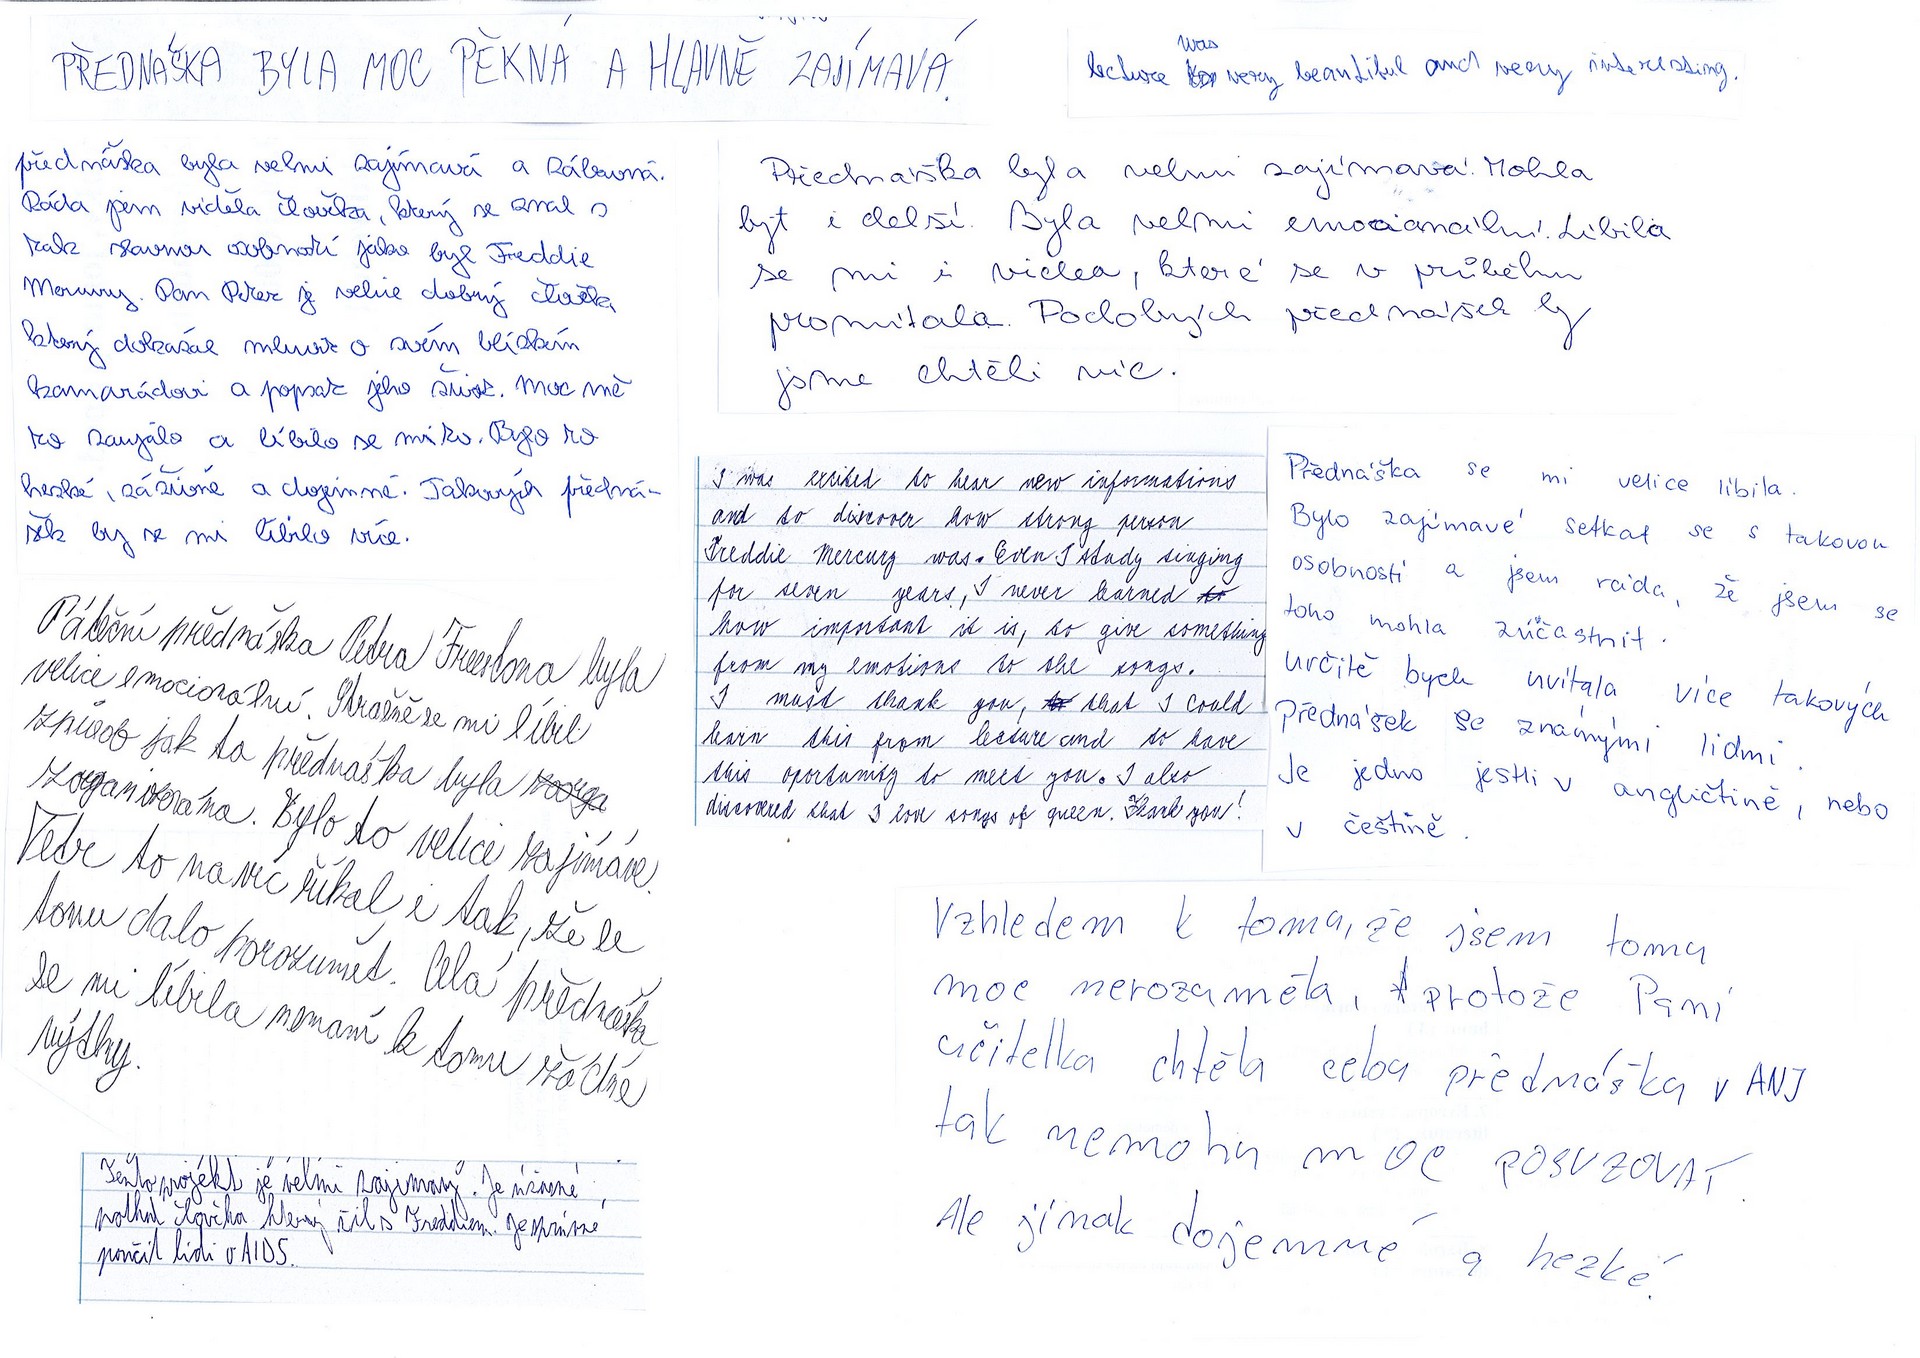 PŘEDNÁŠKA BYLA MOC PĚKNÁ A HLAVNĚ ZAJÍMAVÁ.
was
lecture very beautiful and very interesting.
přednáška byla velmi zajímavá a zábavná.
Ráda jsem viděla člověka, který se znal s
tak slavnou osobností jako byl Freddie
Mercury. Pan Peter je velice dobrý člověk
který dokázal mluvit o svém blízkém
kamarádovi a popsat jeho život. Moc mě
to zaujalo a líbilo se mi to. Bylo to
hezké, záživné a dojemné. Takových předná-
šek by se mi líbilo více.
Přednáška byla velmi zajímavá. Mohla
být i delší. Byla velmi emocianální. Líbila
se mi i videa, které se v průběhu
promítala. Podobných přednášek by
jsme chtěli víc.
I was excited to hear new informations
and to discover how strong person
Freddie Mercury was. Even I study singing
for seven years, I never learned to
how important it is, to give something
from my emotions to the songs.
I must thank you, that I could
learn this from lecture and to have
this oportunity to meet you. I also
discovered that I love songs of queen. Thank you!
Přednáška se mi velice líbila.
Bylo zajímavé setkat se s takovou
osobností a jsem ráda, že jsem se
toho mohla zúčastnit.
Určitě bych uvítala více takových
přednášek se známými lidmi.
Je jedno jestli v angličtině, nebo
v češtině.
Páteční přednáška Petra Freestona byla
velice emocionální. Strašně se mi líbil
způsob jak ta přednáška byla zorga
zorganizována. Bylo to velice zajímáve.
Petr to navíc říkal i tak, že se
tomu dalo porozumět. Celá přednáška
se mi líbila nemam k tomu žádné
výtky.
Tento projekt je velmi zajímavý. Je úžasné
potkat člověka který žil s Freddiem. Je správné
poučit lidi o AIDS.
Vzhledem k tomu, že jsem tomu
moc nerozuměla, protože Paní
učitelka chtěla celou přednášku v ANJ
tak nemohu moc POSUZOVAT.
Ale jinak dojemné a hezké.